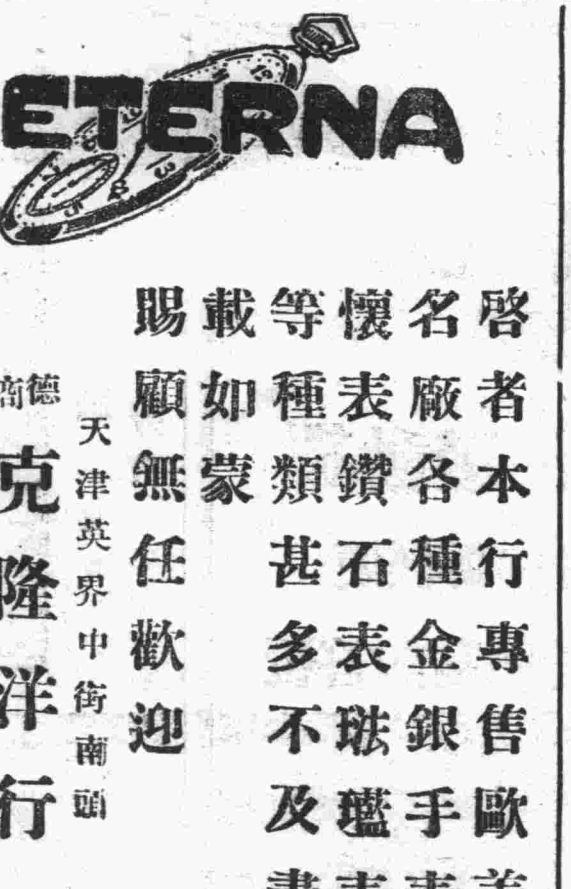 ETERNA
啓者本行專售歐美
名廠各種金銀手表
懷表鑽石表琺瑯表
等種類甚多不及盡
載如蒙
賜顧無任歡迎
天津英界中街南頭
德商
克隆洋行